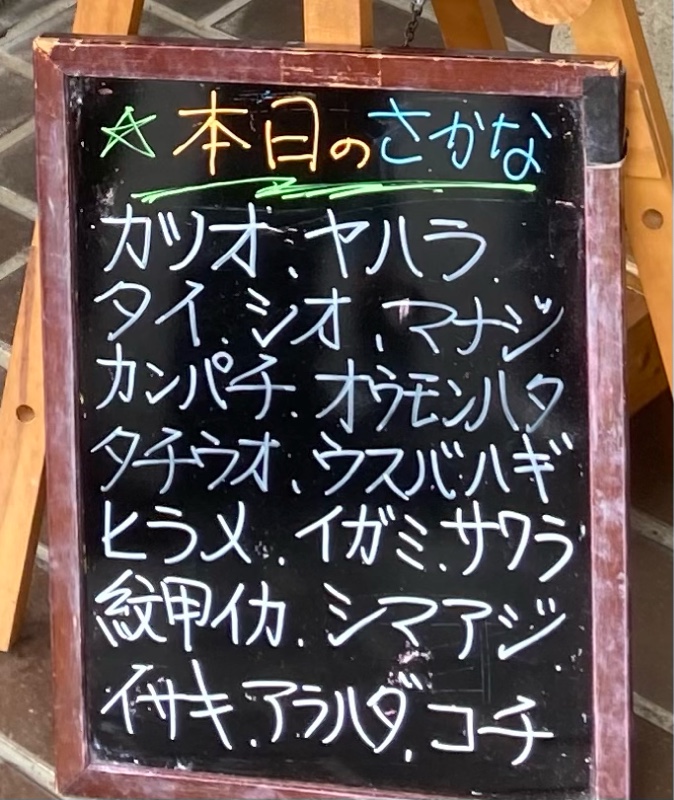 ☆本日のさかな
カツオ、ヤハラ
タイ、シオ、マナジ
カンパチ、オウモンハタ
タチウオ、ウスバハギ
ヒラメ、イガミ、サワラ
紋甲イカ、シマアジ
イサキ、アラハダ、コチ